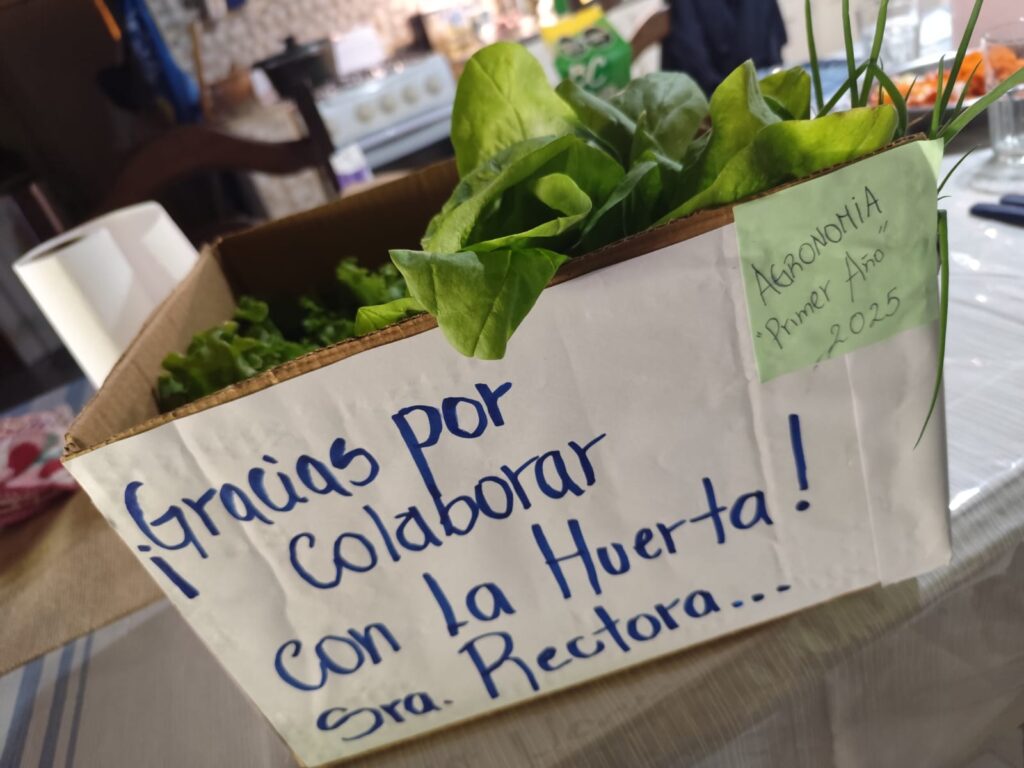 ¡Gracias por
colaborar
con la Huerta!
Sra. Rectora...
AGRONOMIA
"Primer Año"
2025